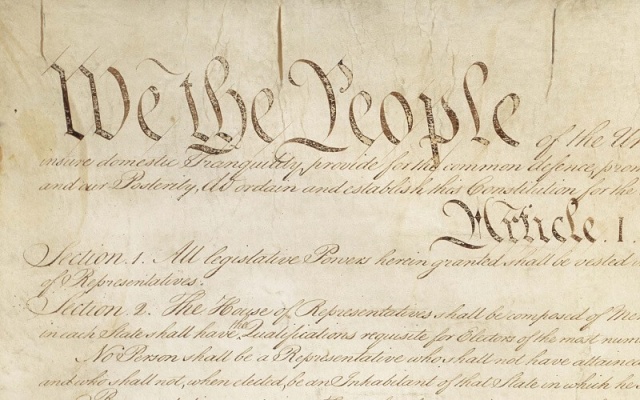 We the People of the Un
insure domestic Tranquility, provide for the common defence, prom
and our Posterity, do ordain and establish this Constitution for the
Article. I.
Section. 1. All legislative Powers herein granted shall be vested
of Representatives.
Section. 2. The House of Representatives shall be composed of Mem
in each State shall have the Qualifications requisite for Electors of the most num
No Person shall be a Representative who shall not have attained
and who shall not, when elected, be an Inhabitant of that State in which he